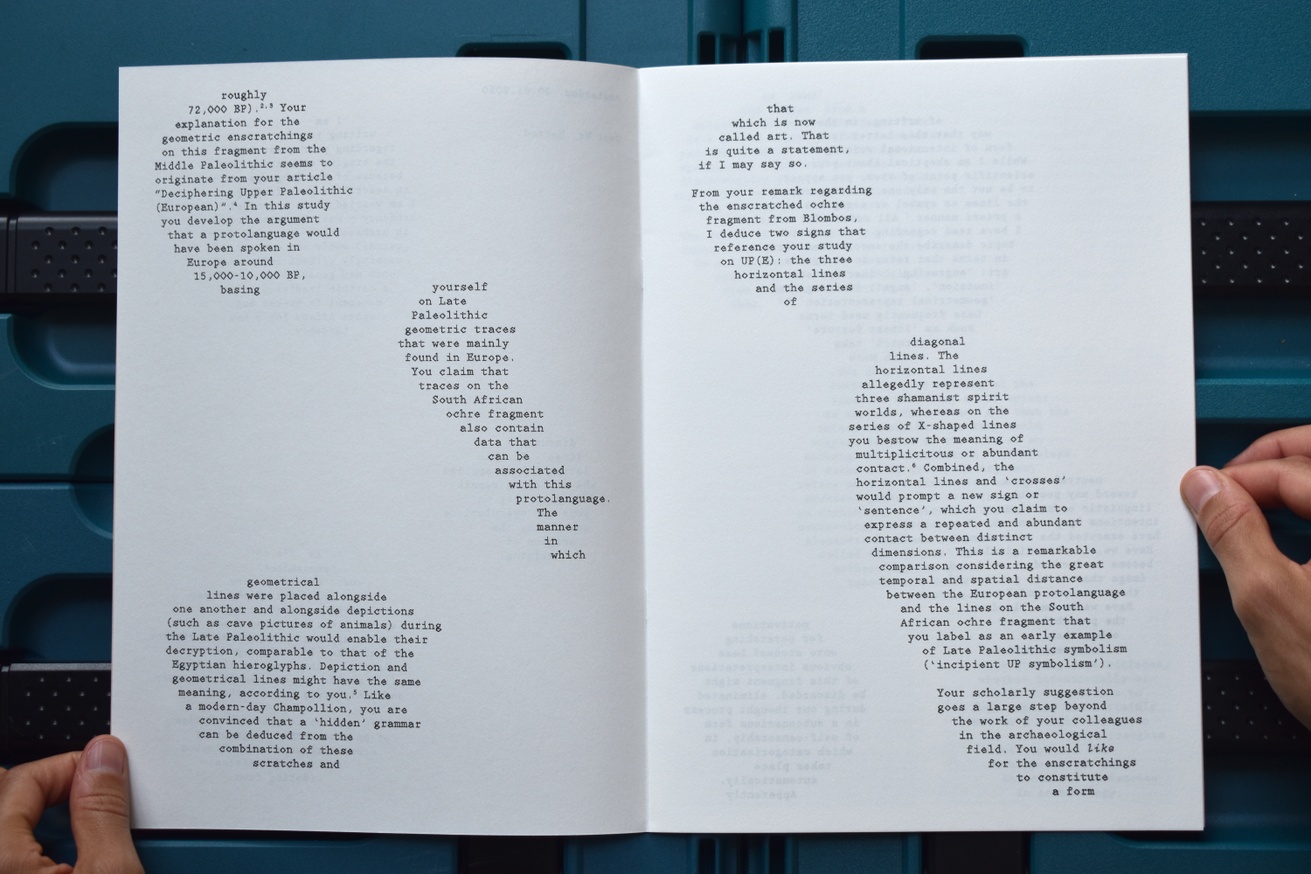 roughly
72,000 BP).²,³ Your
explanation for the
geometric enscratchings
on this fragment from the
Middle Paleolithic seems to
originate from your article
"Deciphering Upper Paleolithic
(European)".⁴ In this study
you develop the argument
that a protolanguage would
have been spoken in
Europe around
15,000-10,000 BP,
basing
yourself
on Late
Paleolithic
geometric traces
that were mainly
found in Europe.
You claim that
traces on the
South African
ochre fragment
also contain
data that
can be
associated
with this
protolanguage.
The
manner
in
which
geometrical
lines were placed alongside
one another and alongside depictions
(such as cave pictures of animals) during
the Late Paleolithic would enable their
decryption, comparable to that of the
Egyptian hieroglyphs. Depiction and
geometrical lines might have the same
meaning, according to you.⁵ Like
a modern-day Champollion, you are
convinced that a ‘hidden’ grammar
can be deduced from the
combination of these
scratches and
that
which is now
called art. That
is quite a statement,
if I may say so.
From your remark regarding
the enscratched ochre
fragment from Blombos,
I deduce two signs that
reference your study
on UP(E): the three
horizontal lines
and the series
of
diagonal
lines. The
horizontal lines
allegedly represent
three shamanist spirit
worlds, whereas on the
series of X-shaped lines
you bestow the meaning of
multiplicitous or abundant
contact.⁶ Combined, the
horizontal lines and ‘crosses’
would prompt a new sign or
‘sentence’, which you claim to
express a repeated and abundant
contact between distinct
dimensions. This is a remarkable
comparison considering the great
temporal and spatial distance
between the European protolanguage
and the lines on the South
African ochre fragment that
you label as an early example
of Late Paleolithic symbolism
(‘incipient UP symbolism’).
Your scholarly suggestion
goes a large step beyond
the work of your colleagues
in the archaeological
field. You would like
for the enscratchings
to constitute
a form